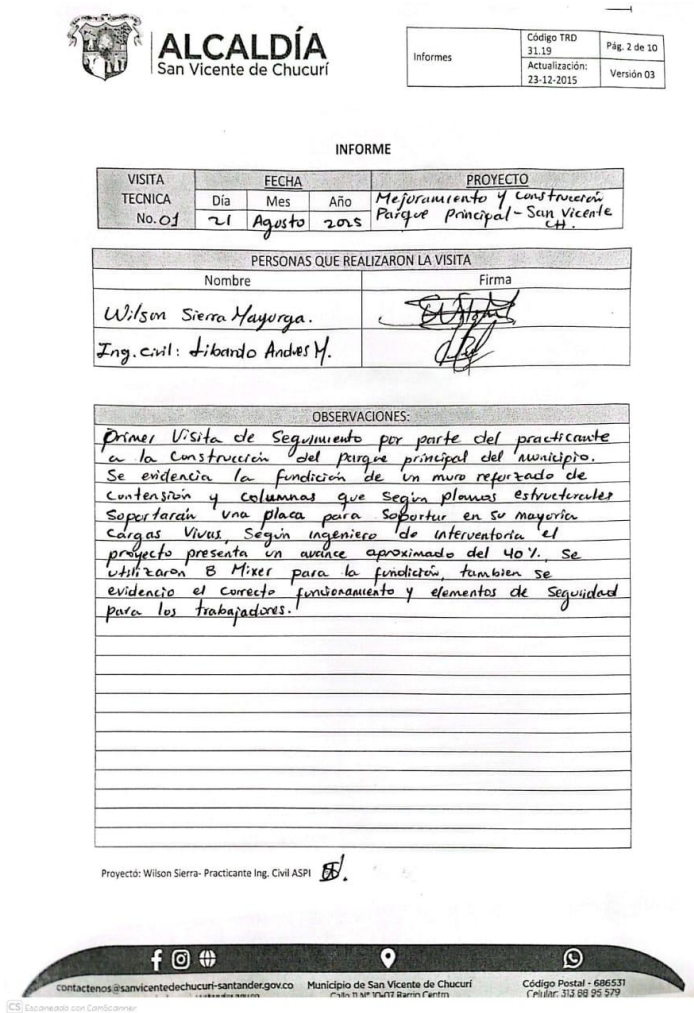 ALCALDÍA
San Vicente de Chucurí
Informes
Código TRD
31.19
Pág. 2 de 10
Actualización:
23-12-2015
Versión 03
INFORME
VISITA
TECNICA
No. 01
FECHA
Día Mes Año
21 Agosto 2025
PROYECTO
Mejoramiento y construcción
Parque Principal - San Vicente
CH.
PERSONAS QUE REALIZARON LA VISITA
Nombre Firma
Wilson Sierra Mayorga.
Ing. civil: Libardo Andres M.
OBSERVACIONES:
Primer Visita de Seguimiento por parte del practicante
a la Construcción del parque principal del municipio.
Se evidencia la fundición de un muro reforzado de
Contensión y columnas que Según planos estructurales
Soportarán una placa para Soportar en su mayoria
Cargas Vivas, Según ingeniero de interventoria el
proyecto presenta un avance aproximado del 40%. Se
utilizaron 8 Mixer para la fundición, tambien se
evidencio el correcto funcionamiento y elementos de Seguridad
para los trabajadores.
Proyectó: Wilson Sierra- Practicante Ing. Civil ASPI
contactenos@sanvicentedechucuri-santander.gov.co
Municipio de San Vicente de Chucurí
Calle 11 N° 10-07 Barrio Centro
Código Postal - 686531
Celular: 313 88 95 579
CS Escaneado con CamScanner